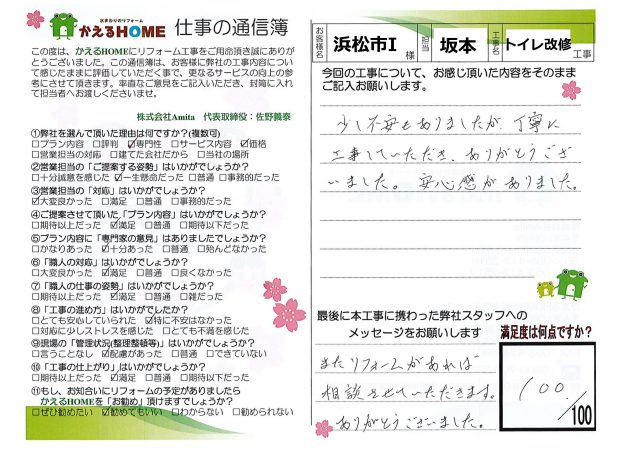 水まわりのリフォーム
かえるHOME 仕事の通信簿
この度は、かえるHOMEにリフォーム工事をご用命頂き誠にありが
とうございました。この通信簿は、お客様に弊社の工事内容につい
て感じたままに評価していただく事で、更なるサービスの向上の参
考にさせて頂きます。率直なご意見をご記入いただき、封筒に入れ
て担当者へお渡しくださいませ。
株式会社Amita 代表取締役：佐野義泰
①弊社を選んで頂いた理由は何ですか?(複数可)
□プラン内容 □評判 ☑専門性 □サービス内容 ☑価格
□営業担当の対応 □建てた会社だから □当社の場所
②営業担当の「ご提案する姿勢」はいかがでしょうか?
□十分誠意を感じた ☑一生懸命だった □普通 □事務的だった
③営業担当の「対応」はいかがでしょうか?
☑大変良かった □満足 □普通 □事務的だった
④ご提案させて頂いた「プラン内容」はいかがでしょうか?
□期待以上だった ☑満足 □普通 □期待以下だった
⑤プラン内容に「専門家の意見」はありましたでしょうか?
□かなりあった ☑十分あった □普通 □殆んどなかった
⑥「職人の対応」はいかがでしょうか?
□大変良かった ☑満足 □普通 □良くなかった
⑦「職人の仕事の姿勢」はいかがでしょうか?
□期待以上だった ☑満足 □普通 □雑だった
⑧「工事の進め方」はいかがでしたか?
□とても安心していられた ☑特に不安はなかった
□対応に少しストレスを感じた □とても不満を感じた
⑨現場の「管理状況(整理整頓等)」はいかがでしょうか?
□言うことなし ☑配慮があった □普通 □できていない
⑩「工事の仕上がり」はいかがでしょうか?
□期待以上だった ☑満足 □普通 □期待以下だった
⑪もし、お知合いにリフォームの予定がありましたら
かえるHOMEを「お勧め」頂けますでしょうか?
□ぜひ勧めたい ☑勧めてもいい □わからない □勧められない
お客様名 浜松市I 様 担当 坂本 工事名 トイレ改修 工事
今回の工事について、お感じ頂いた内容をそのまま
ご記入お願いします。
少し不安もありましたが、丁寧に
工事していただき、ありがとうござ
いました。安心感がありました。
最後に本工事に携わった弊社スタッフへの
メッセージをお願いします
またリフォームがあれば
相談させていただきます。
ありがとうございました。
満足度は何点ですか?
100.
/100